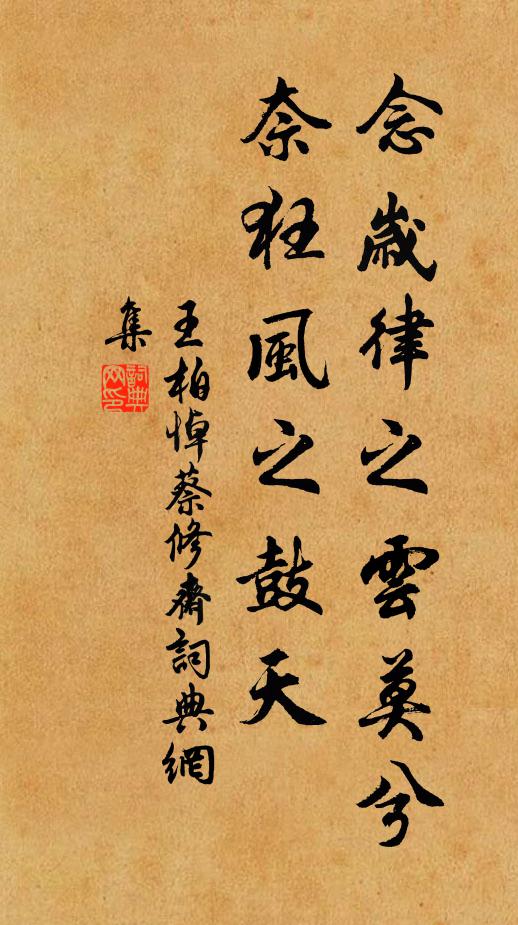 念歲律之雲莫兮
奈狂風之鼓天
王柏悼蔡修齋詞典網
集
詞典網印